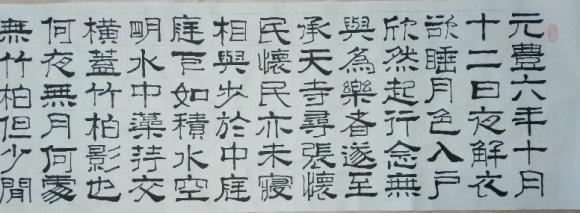 元豐六年十月
十二日夜解衣
欲睡月色入戶
欣然起行念無
與為樂者遂至
承天寺尋張懷
民懷民亦未寢
相與步於中庭
庭下如積水空
明水中藻荇交
橫蓋竹柏影也
何夜無月何處
無竹柏但少閒